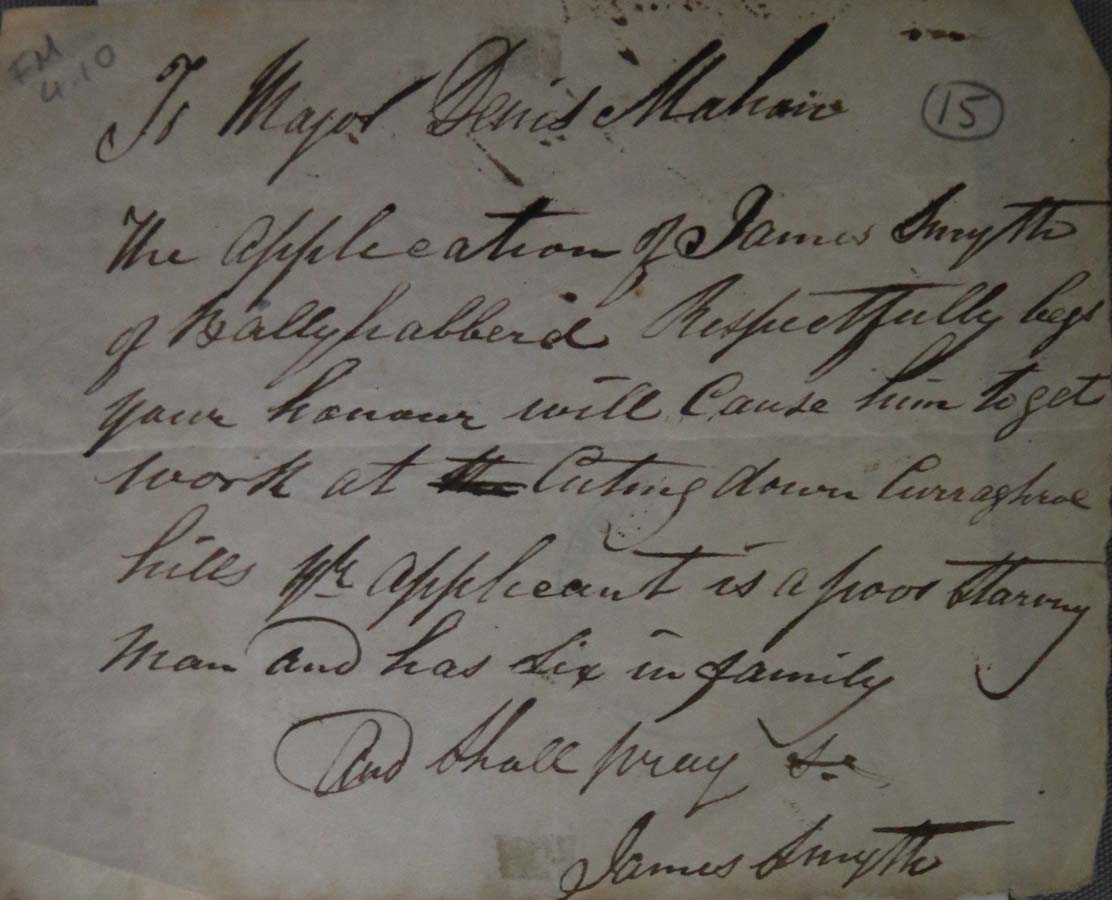 FM
4.10
15
To Major Denis Mahon
The application of James Smyth
of Ballyhabberd Respectfully begs
your honour will Cause him to get
work at the Cuting down Curraghroe
hills yr applicant is a poor Starving
man and has six in family
And shall pray &c
James Smyth